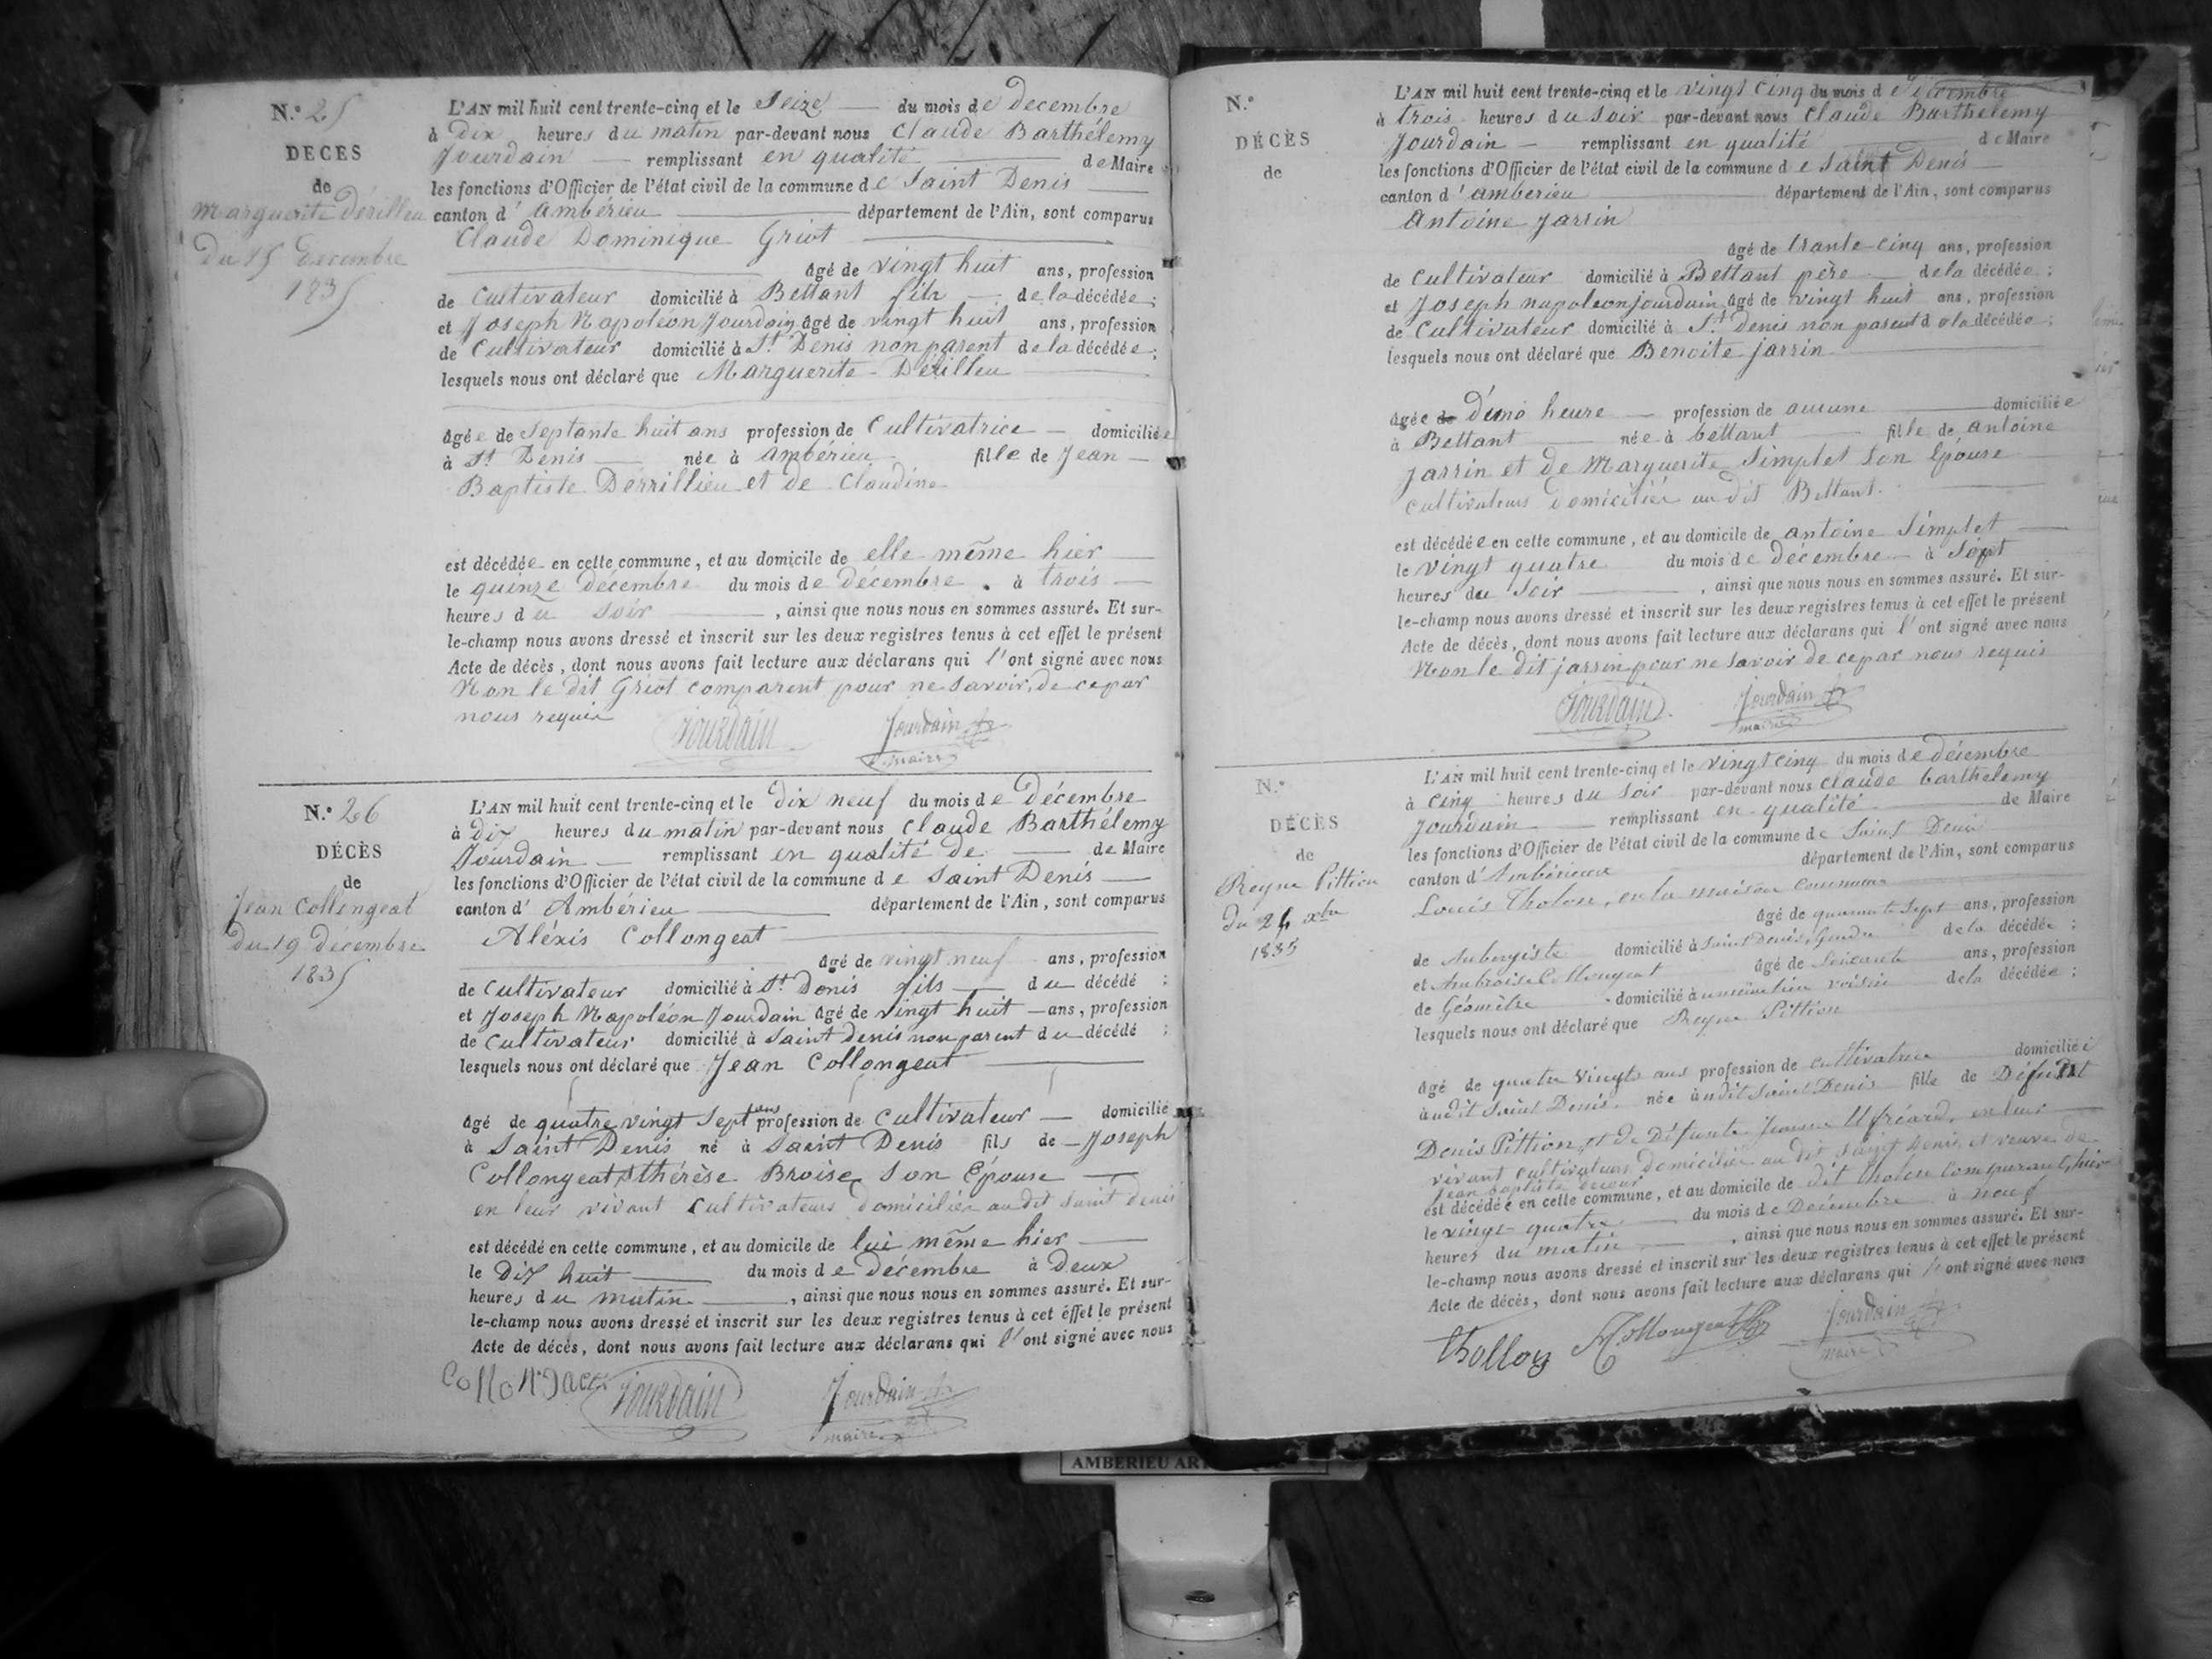 N.° 25
DECES
de
Marguerite Dérilleu
Du 15 Decembre
1835
L'AN mil huit cent trente-cinq et le Seize du mois de decembre
à Dix heures du matin par-devant nous Claude Barthélemy
Jourdain remplissant en qualité de Maire
les fonctions d'Officier de l'état civil de la commune de Saint Denis
canton d' Ambérieu département de l'Ain, sont comparus
Claude Dominique Griot
âgé de vingt huit ans, profession
de Cultivateur domicilié à Bettant fils de la décédée ;
et Joseph Napoléon Jourdain âgé de vingt huit ans, profession
de Cultivateur domicilié à St Denis non parent de la décédée ;
lesquels nous ont déclaré que Marguerite Dérilleu
âgée de Septante huit ans profession de Cultivatrice domiciliée
à St Denis née à Ambérieu fille de Jean
Baptiste Dérrillieu et de Claudine
est décédée en cette commune, et au domicile de elle même hier
le quinze décembre du mois de décembre à trois
heures du soir , ainsi que nous nous en sommes assuré. Et sur-
le-champ nous avons dressé et inscrit sur les deux registres tenus à cet effet le présent
Acte de décès, dont nous avons fait lecture aux déclarans qui l'ont signé avec nous
Non le dit Griot comparent pour ne savoir, de ce par
nous requis
Jourdain Jourdain
maire
N.° 26
DÉCÈS
de
Jean Collongeat
Du 19 décembre
1835
L'AN mil huit cent trente-cinq et le dix neuf du mois de Décembre
à dix heures du matin par-devant nous Claude Barthélemy
Jourdain remplissant en qualité de de Maire
les fonctions d'Officier de l'état civil de la commune de Saint Denis
canton d' Ambérieu département de l'Ain, sont comparus
Aléxis Collongeat
âgé de vingt neuf ans, profession
de Cultivateur domicilié à St Denis fils du décédé ;
et Joseph Napoléon Jourdain âgé de vingt huit ans, profession
de Cultivateur domicilié à Saint denis non parent du décédé ;
lesquels nous ont déclaré que Jean Collongeat
âgé de quatre vingt Sept ans profession de Cultivateur domicilié
à Saint Denis né à Saint Denis fils de Joseph
Collongeat thérèse Broise son Epouse
en leur vivant Cultivateurs domiciliés au dit Saint denis
est décédé en cette commune, et au domicile de lui même hier
le Dix huit du mois de Décembre à Deux
heures du matin , ainsi que nous nous en sommes assuré. Et sur-
le-champ nous avons dressé et inscrit sur les deux registres tenus à cet effet le présent
Acte de décès, dont nous avons fait lecture aux déclarans qui l'ont signé avec nous
Jourdain Jourdain
maire
N.°
DÉCÈS
de
L'AN mil huit cent trente-cinq et le vingt cinq du mois de décembre
à trois heures du soir par-devant nous Claude Barthelemy
Jourdain remplissant en qualité de Maire
les fonctions d'Officier de l'état civil de la commune de Saint Denis
canton d' amberieu département de l'Ain, sont comparus
Antoine Jarrin
âgé de trante-cinq ans, profession
de Cultivateur domicilié à Bettant père de la décédée ;
et Joseph napoleon jourdain âgé de vingt huit ans, profession
de Cultivateur domicilié à St Denis non parent de la décédée ;
lesquels nous ont déclaré que Benoite jarrin
âgée de d'une heure profession de aucune domiciliée
à Bettant née à bettant fille de Antoine
Jarrin et de Marguerite Simplet son Epouse
cultivateurs domiciliés au dit Bettant.
est décédée en cette commune, et au domicile de antoine Simplet
le vingt quatre du mois de décembre à sept
heures du soir , ainsi que nous nous en sommes assuré. Et sur-
le-champ nous avons dressé et inscrit sur les deux registres tenus à cet effet le présent
Acte de décès, dont nous avons fait lecture aux déclarans qui l'ont signé avec nous
Non le dit jarrin pour ne savoir de ce par nous requis
Jourdain Jourdain
maire
N.°
DÉCÈS
de
Reyne Pittion
Du 24 xbre
1835
L'AN mil huit cent trente-cinq et le vingt cinq du mois de décembre
à cinq heures du soir par-devant nous claude barthelemy
Jourdain remplissant en qualité de Maire
les fonctions d'Officier de l'état civil de la commune de Saint Denis
canton d' Ambérieux département de l'Ain, sont comparus
Louis Tholon, en la maison commune
âgé de quarante Sept ans, profession
de Aubergiste domicilié à Saint Denis, Gendre de la décédée ;
et Ambroise Collongeat âgé de Soixante ans, profession
de Géomètre domicilié à voisin de la décédée ;
lesquels nous ont déclaré que Reyne Pittion
âgé de quatre vingts ans profession de cultivatrice domicilié
à udit Saint Denis née à udit Saint Denis fille de Défunt
Denis Pittion, et de Défunte Jeanne en leur
vivant cultivateurs domiciliés au dit Saint Denis et veuve de
Jean baptiste
est décédée en cette commune, et au domicile de dit Tholon comparant, hier
le vingt-quatre du mois de Décembre à neuf
heures du matin , ainsi que nous nous en sommes assuré. Et sur-
le-champ nous avons dressé et inscrit sur les deux registres tenus à cet effet le présent
Acte de décès, dont nous avons fait lecture aux déclarans qui l'ont signé avec nous
Thollon Collongeat Jourdain
maire
AMBERIEU AR